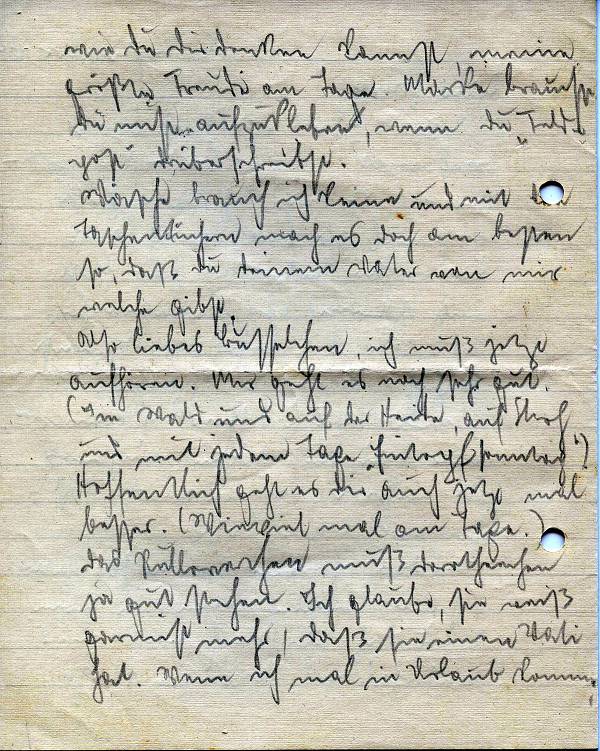 wie du dir denken kannst, meine
größte Freude am Tage. Marke brauchst
du nicht aufzukleben, wenn du "Feld-
post" rüberschreibst.
Wäsche brauch ich keine und mit den
Taschentüchern mach es doch am besten
so, daß du deinem Vater von mir
welche gibst.
Also liebes, ich muß jetzt
aufhören. Mir geht es noch sehr gut.
(Im Wald und auf der Heide, auf Stroh
und mit jedem Tage
Hoffentlich geht es dir auch jetzt mal
besser. (Wieviel mal am Tage.)
Das muß Dorothechen
ja gut stehen. Ich glaube, sie weiß
garnicht mehr, daß sie einen Vati
hat. Wenn ich mal in Urlaub komme,